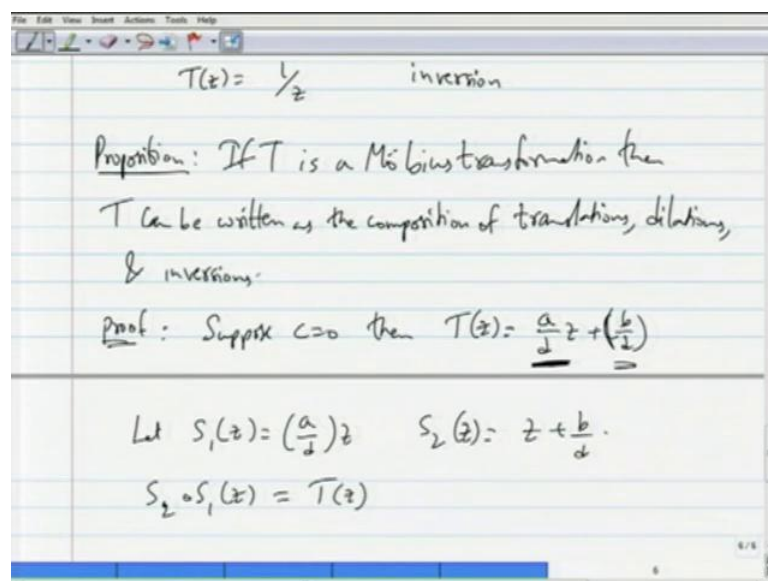 File Edit View Insert Actions Tools Help
T(z) = 1/z inversion
Proposition: If T is a Möbius transformation then
T can be written as the composition of translations, dilations,
& inversions.
Proof: Suppose c=0 then T(z) = a/d z + (b/d)
Let S₁(z) = (a/d)z S₂(z) = z + b/d.
S₂∘S₁(z) = T(z)
6/6
6